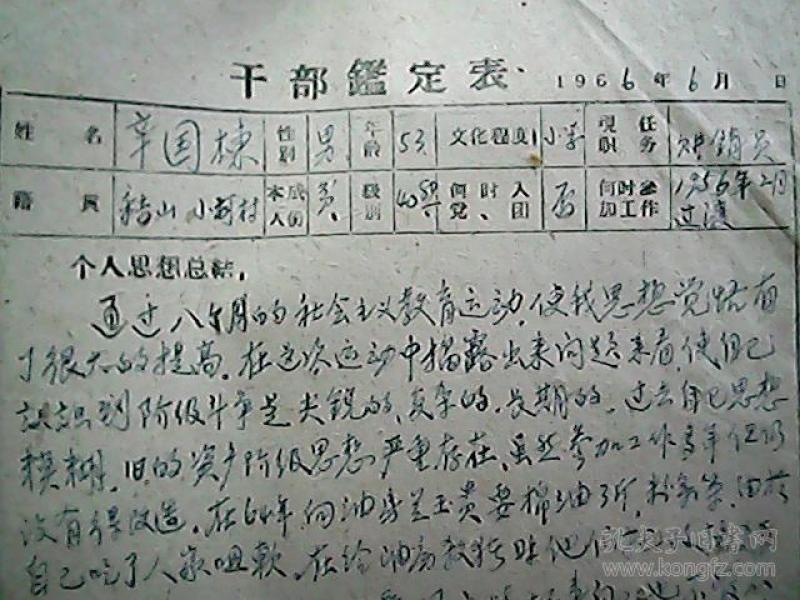 干部鑑定表 1966年6月 日
姓名 辛国栋 性别 男 年龄 53 文化程度 小学 现任职务 购销员
籍贯 稷山 小河村 本人成份 贫 级别 何时入党、团 否 何时参加工作 1956年2月过渡
个人思想总结。
通过八个月的社会主义教育运动,使我思想觉悟有
了很大的提高。在这次运动中揭露出来问题来看,使自己
认识到阶级斗争是尖锐的、复杂的、长期的。过去自己思想
模糊,旧的资产阶级思想严重存在,虽然参加工作多年但仍
没有得改造。在64年向油房兰玉贵要棉油3斤,
自己吃了人家咀軟,在给油房
孔夫子旧书网
www.kongfz.com